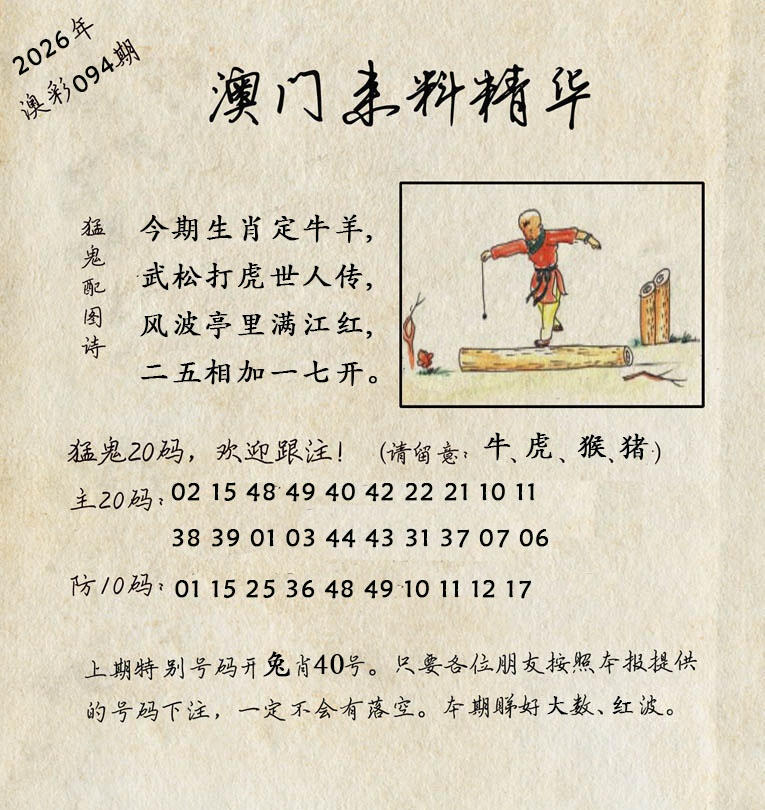 2026年
澳彩094期
澳门来料精华
猛鬼配图诗
今期生肖定牛羊,
武松打虎世人传,
风波亭里满江红,
二五相加一七开。
猛鬼20码，欢迎跟注！（请留意：牛、虎、猴、猪）
主20码：02 15 48 49 40 42 22 21 10 11
38 39 01 03 44 43 31 37 07 06
防10码：01 15 25 36 48 49 10 11 12 17
上期特别号码开兔肖40号。只要各位朋友按照本报提供
的号码下注，一定不会有落空。本期睇好大数、红波。